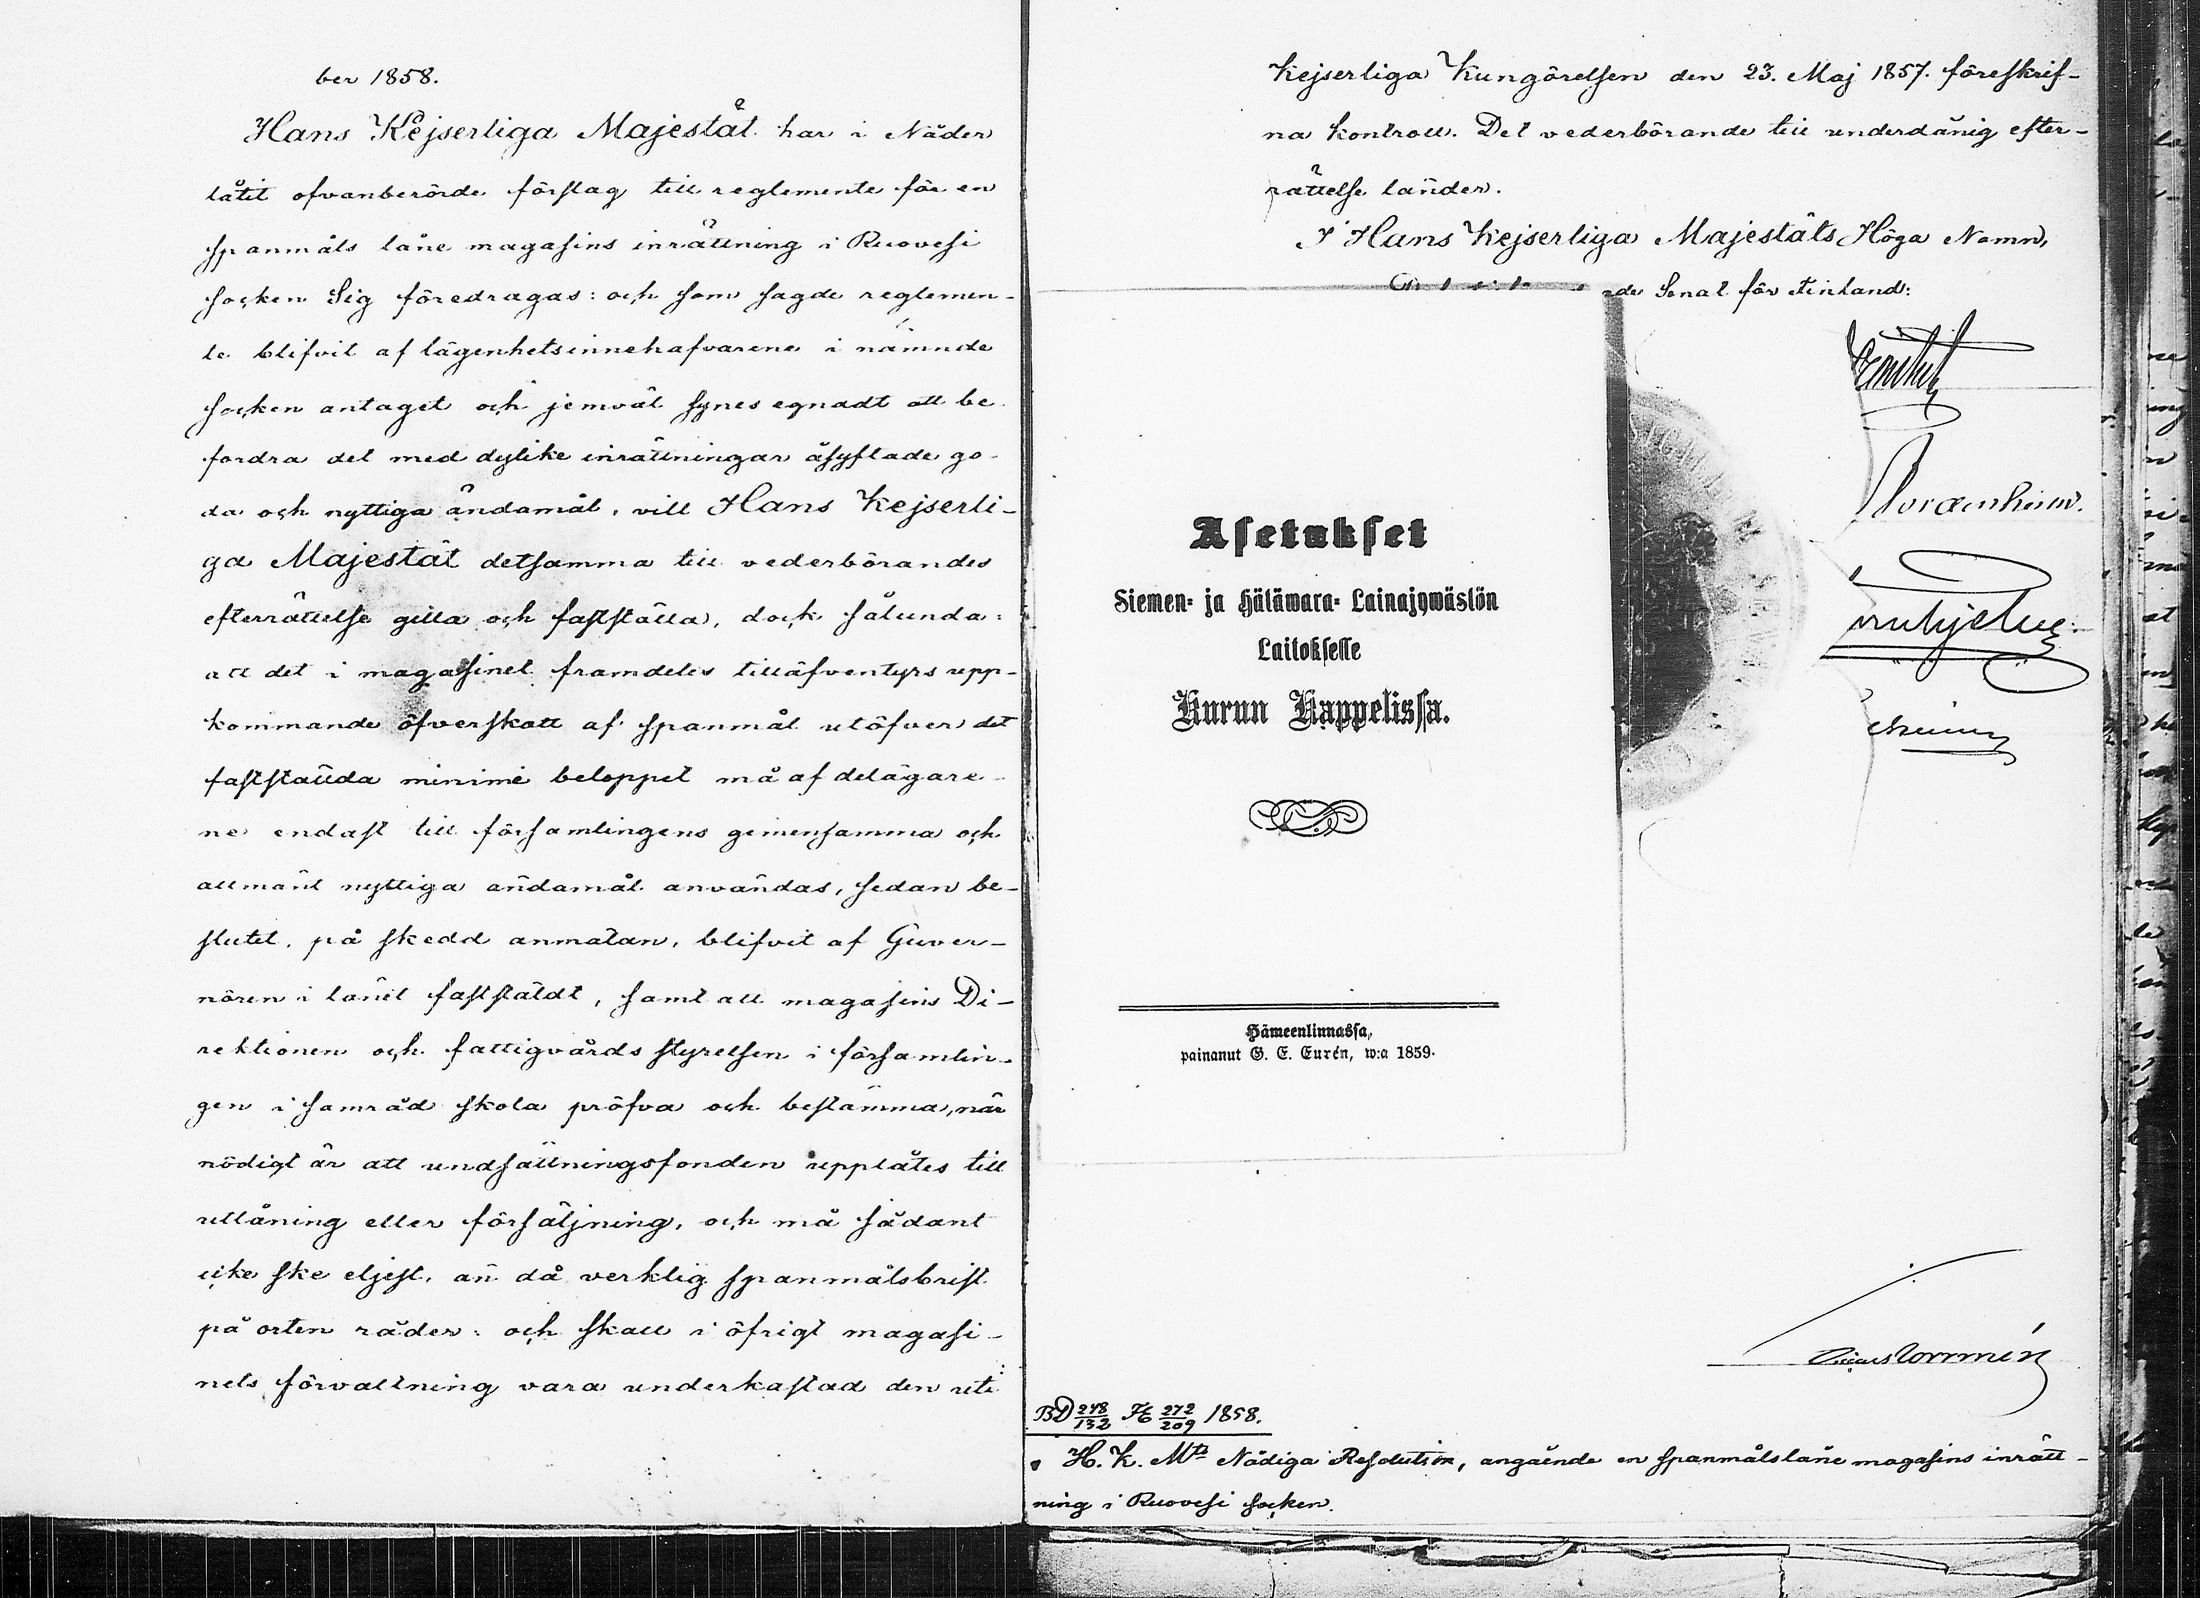 ber 1858.
Hans Kejserliga Majestät har i Nåder
låtit ofvanberörde förslag till reglemente för en
spanmåls låne magasins inrättning i Ruovesi
socken Sig föredragas: och som sagde reglemen-
te blifvit af lägenhetsinnehafvarene i nämnde
socken antaget och jemväl synes egnadt att be-
fordra det med dylike inrättningar åsyftade go-
da och nyttiga ändamål, vill Hans Kejserli-
ga Majestät detsamma till vederbörandes
efterrättelse gilla och fastställa, dock sålunda:
att det i magasinet framdeles tilläfventyrs upp-
kommande öfverskott af spanmål utöfver det
fastställda minimi beloppet må af delägare-
ne endast till församlingens gemensamma och
allmänt nyttiga ändamål användas, sedan be-
slutet, på skedd anmälan, blifvit af Guver-
nören i länet fastställdt, samt att magasins Di-
rektionen och fattigvårds styrelsen i församlin-
gen i samråd skola pröfva och bestämma, när
nödigt är att undsättningsfonden upplåtes till
utlåning eller försäljning, och må sådant
icke ske eljest, än då verklig spanmålsbrist
på orten råder: och skall i öfrigt magasi-
nets förvaltning vara underkastad den uti
Kejserliga Kungörelsen den 23. Maj 1857. föreskrif-
na kontroll. Det vederbörande till underdånig efter-
rättelse länder.
I Hans Kejserliga Majestäts Höga Namn,
de Senat för Finland:
Asetukset
Siemen- ja Hätäwara- Lainajywästön
Laitokselle
Kurun Kappelissa.
Hämeenlinnassa,
painanut G. E. Eurén, w:a 1859.
BD 248/132 KE 272/209 1858.
H. K. Mts Nådiga Resolution, angående en spanmålslåne magasins inrätt-
ning i Ruovesi socken.